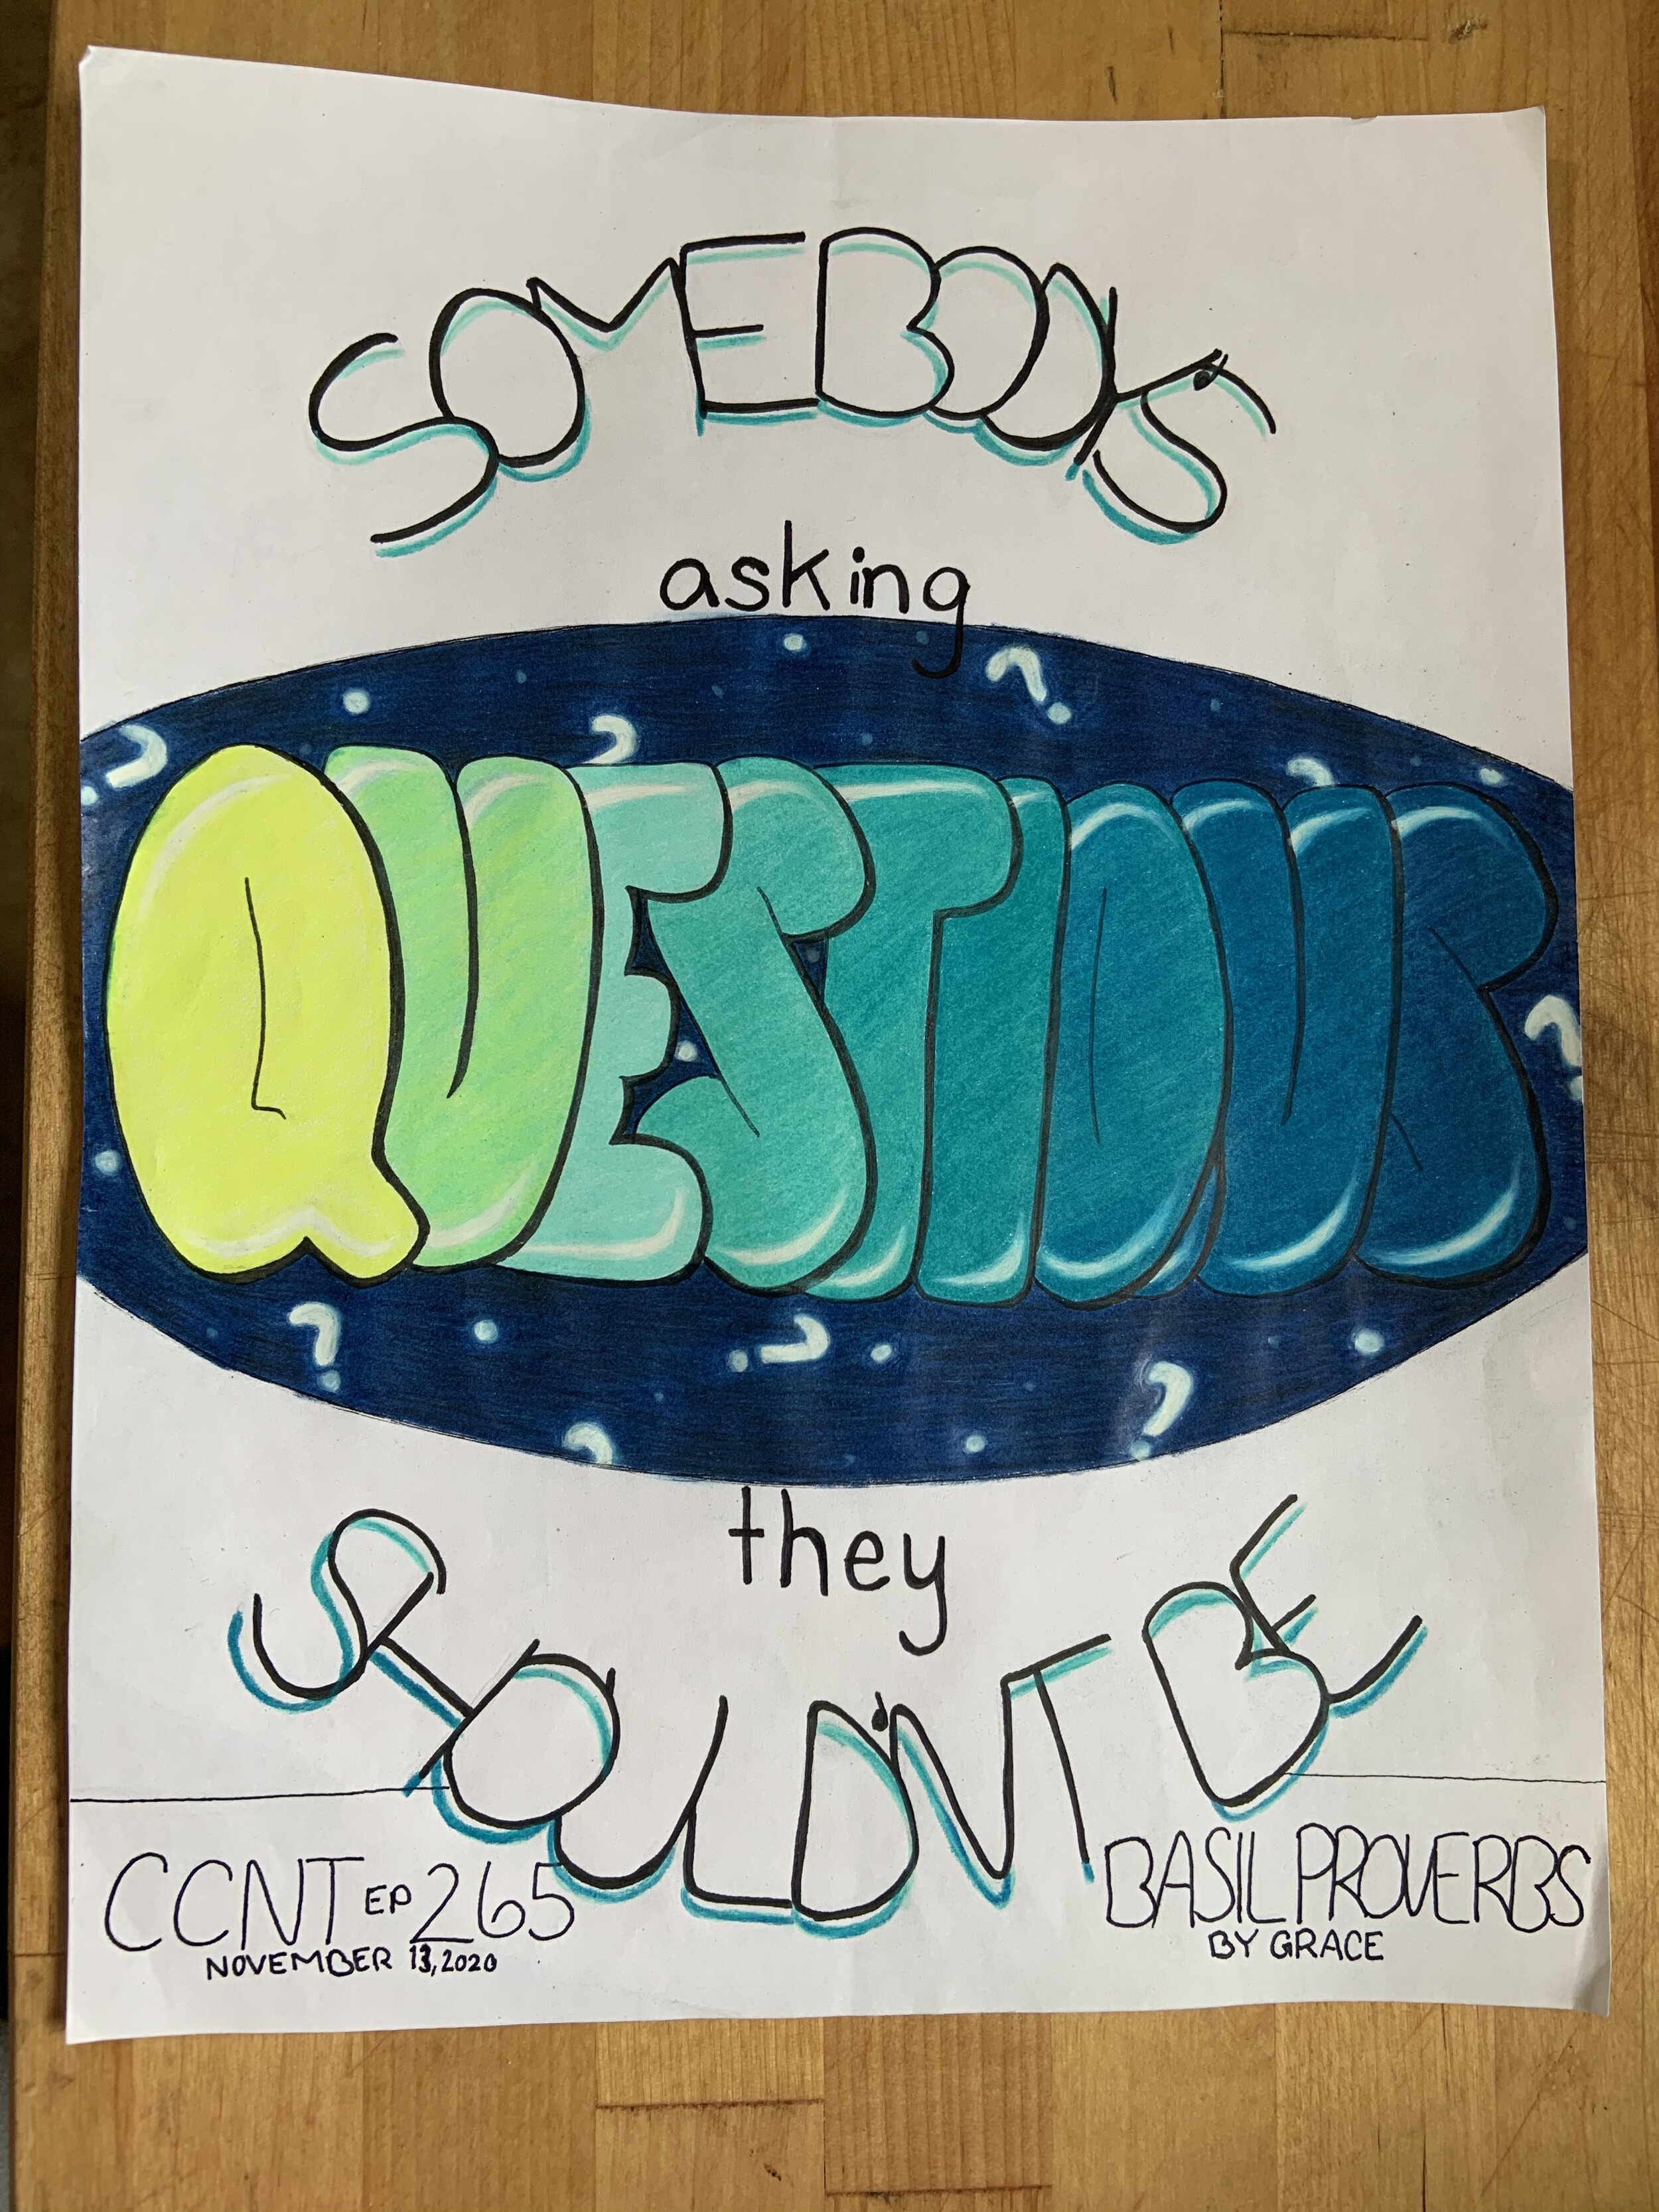 SOMEBODY'S
asking
QUESTIONS
they
SHOULD'NT BE
CCNT EP 265
NOVEMBER 13, 2020
BASIL PROVERBS
BY GRACE